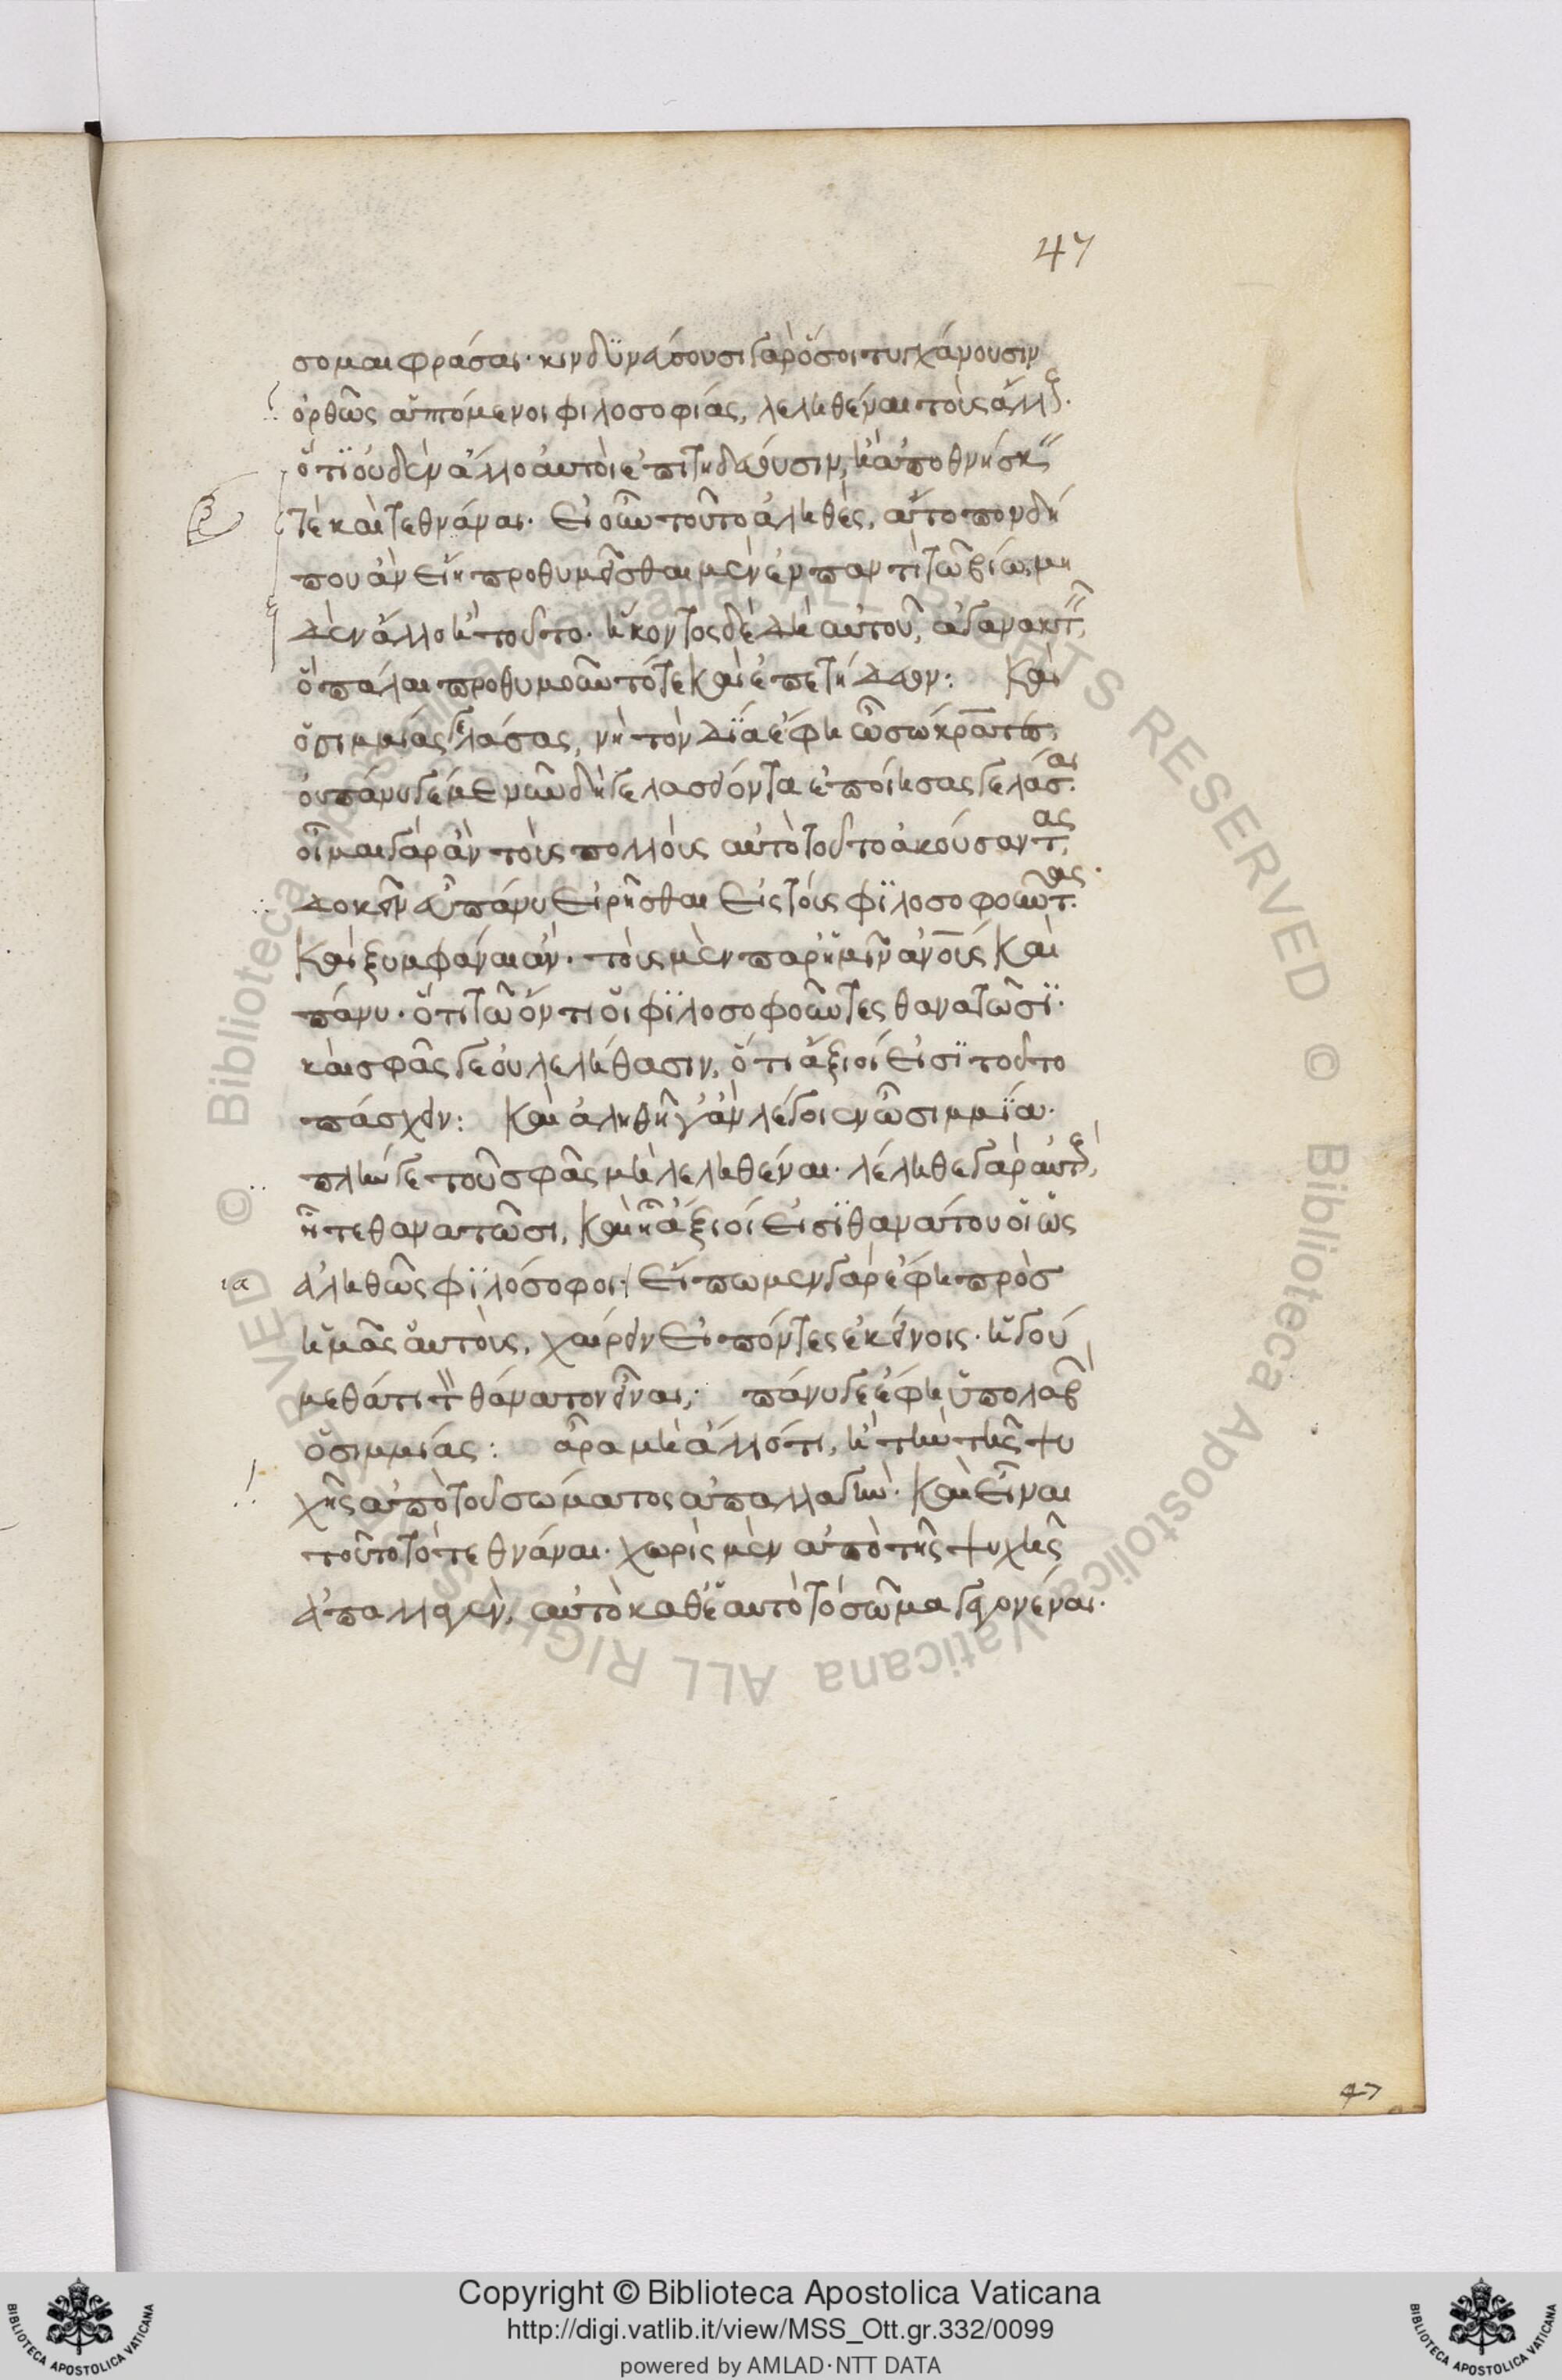 47
σομαι φράσαι· κινδυνεύουσι γὰρ ὅσοι τυγχάνουσιν
ὀρθῶς ἁπτόμενοι φιλοσοφίας, λεληθέναι τοὺς ἄλλους·
ὅτι οὐδὲν ἄλλο αὐτοὶ ἐπιτηδεύουσιν, ἢ ἀποθνήσκειν
τὲ καὶ τεθνάναι· εἰ οὖν τοῦτο ἀληθὲς, ἄτοπον δή
που ἂν εἴη προθυμεῖσθαι μὲν ἐν παντὶ τῷ βίῳ, μη
δὲν ἄλλο ἢ τοῦτο· ἥκοντος δὲ δὴ αὐτοῦ, ἀγανακτεῖν,
ὃ πάλαι προθυμοῦντό τε καὶ ἐπετήδευον: Καὶ
ὁ σιμμίας γελάσας, νὴ τὸν Δία ἔφη ὦ σώκρατες,
οὐ πάνυ γέ με νῦν δὴ γελασείοντα ἐποίησας γελάσαι·
οἶμαι γὰρ ἂν τοὺς πολλοὺς αὐτὸ τοῦτο ἀκούσαντας,
δοκεῖν εὖ πάνυ εἰρῆσθαι εἰς τοὺς φιλοσοφοῦντας·
καὶ ξυμφάναι ἄν· τοὺς μὲν παρ' ἡμῖν ἀν̅ους καὶ
πάνυ· ὅτι τῷ ὄντι οἱ φιλοσοφοῦντες θανατῶσι·
καὶ σφᾶς γε οὐ λελήθασιν, ὅτι ἄξιοί εἰσι τοῦτο
πάσχειν: Καὶ ἀληθῆ γ' ἂν λέγοιεν ὦ σιμμία·
πλήν γε τοῦ σφᾶς μὴ λεληθέναι· λέληθε γὰρ αὐτούς,
ἧ τε θανατῶσι, καὶ ἧ ἄξιοί εἰσι θανάτου οἱ ὡς
ἀληθῶς φιλόσοφοι· εἴπωμεν γὰρ ἔφη πρὸς
ια
ἡμᾶς αὐτοὺς, χαίρειν εἰπόντες ἐκείνοις· ἡγού
μεθά τι τὸν θάνατον εἶναι; πάνυ γε ἔφη ὑπολαβὼν
ὁ σιμμίας: ἆρα μὴ ἄλλό τι, ἢ τὴν τῆς ψυ
χῆς ἀπὸ τοῦ σώματος ἀπαλλαγήν· καὶ εἶναι
τοῦτο τὸ τεθνάναι· χωρὶς μὲν ἀπὸ τῆς ψυχῆς
ἀπαλλαγὲν, αὐτὸ καθ' αὑτὸ τὸ σῶμα γεγονέναι·
47
Copyright © Biblioteca Apostolica Vaticana
http://digi.vatlib.it/view/MSS_Ott.gr.332/0099
powered by AMLAD·NTT DATA
BIBLIOTECA APOSTOLICA VATICANA
BIBLIOTECA APOSTOLICA VATICANA